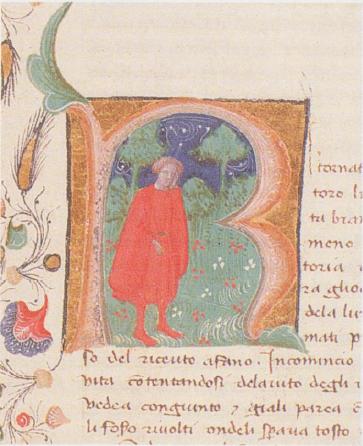 R
itornat
toro li
tu bran
meno
toria
ra glio
dela lu
mati p
so del riceuto afano. Incomincio
uita cotentandosi delaiuto degli
uedea congiunto ⁊ quali parea e
li riuolti ondeli spaua tosto